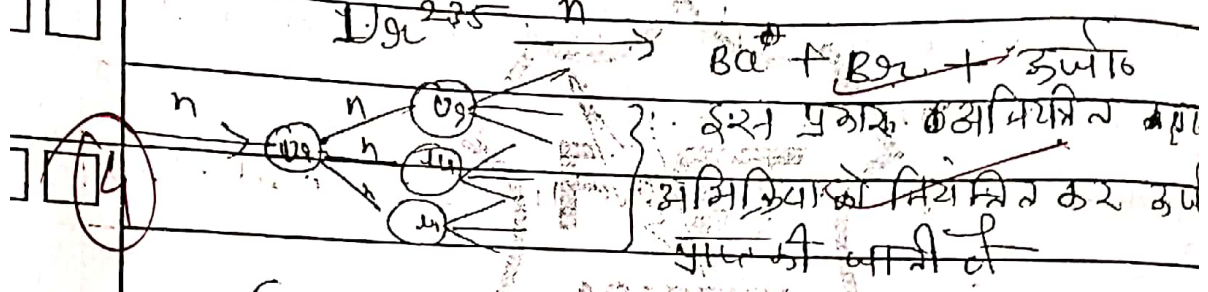 Ur 235 n → Ba + Br + ऊर्जा
n n Ur
Ur n Ur
n Ur
इस प्रकार अनियंत्रित
अभिक्रिया को नियंत्रित कर ऊर्जा
प्राप्त की जाती है
4